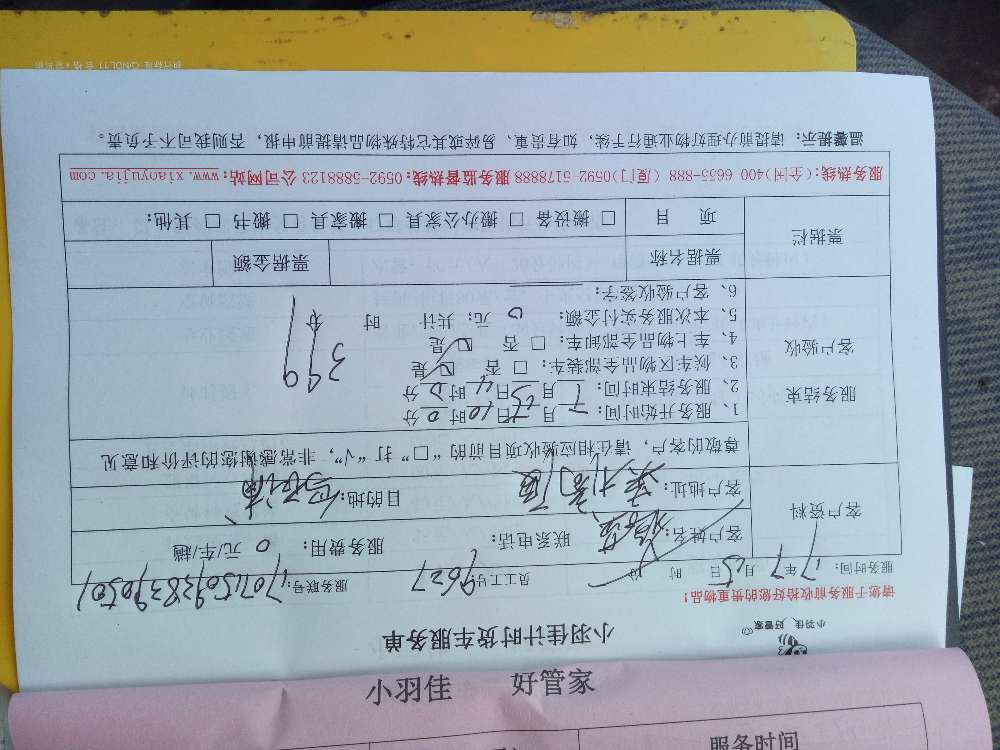 小羽佳 好管家
服务时间
小羽佳 好管家
小羽佳计时货车服务单
请您于服务前收拾好您的贵重物品！
服务时间：17年7月15日 时 分 员工工号：9627 服务联号：
客户资料
客户姓名： 联系电话： 服务费用：0 元/车/趟
客户地址： 目的地：
尊敬的客户，请在相应验收项目前的“□”打“√”，非常感谢您的评价和意见
服务结束
客户验收
1、服务开始时间：7月15日10时0分
2、服务结束时间：7月15日 时 分
3、候车区物品全部装车：□ 否 □ 是
4、车上物品全部卸车：□ 否 □ 是
5、本次服务实付金额：0 元；共计 时 分
399
6、客户验收签字：
票据栏
票据名称 票据金额
项 目 □ 搬设备 □ 搬办公家具 □ 搬家具 □ 搬书 □ 其他：
服务热线：(全国)400-6655-888 (厦门)0592-5178888 服务监督热线：0592-5888123 公司网站：www.xiaoyujia.com
温馨提示：请提前办理好物业通行手续，如有贵重、易碎或其它特殊物品请提前申报，否则我司不予负责。